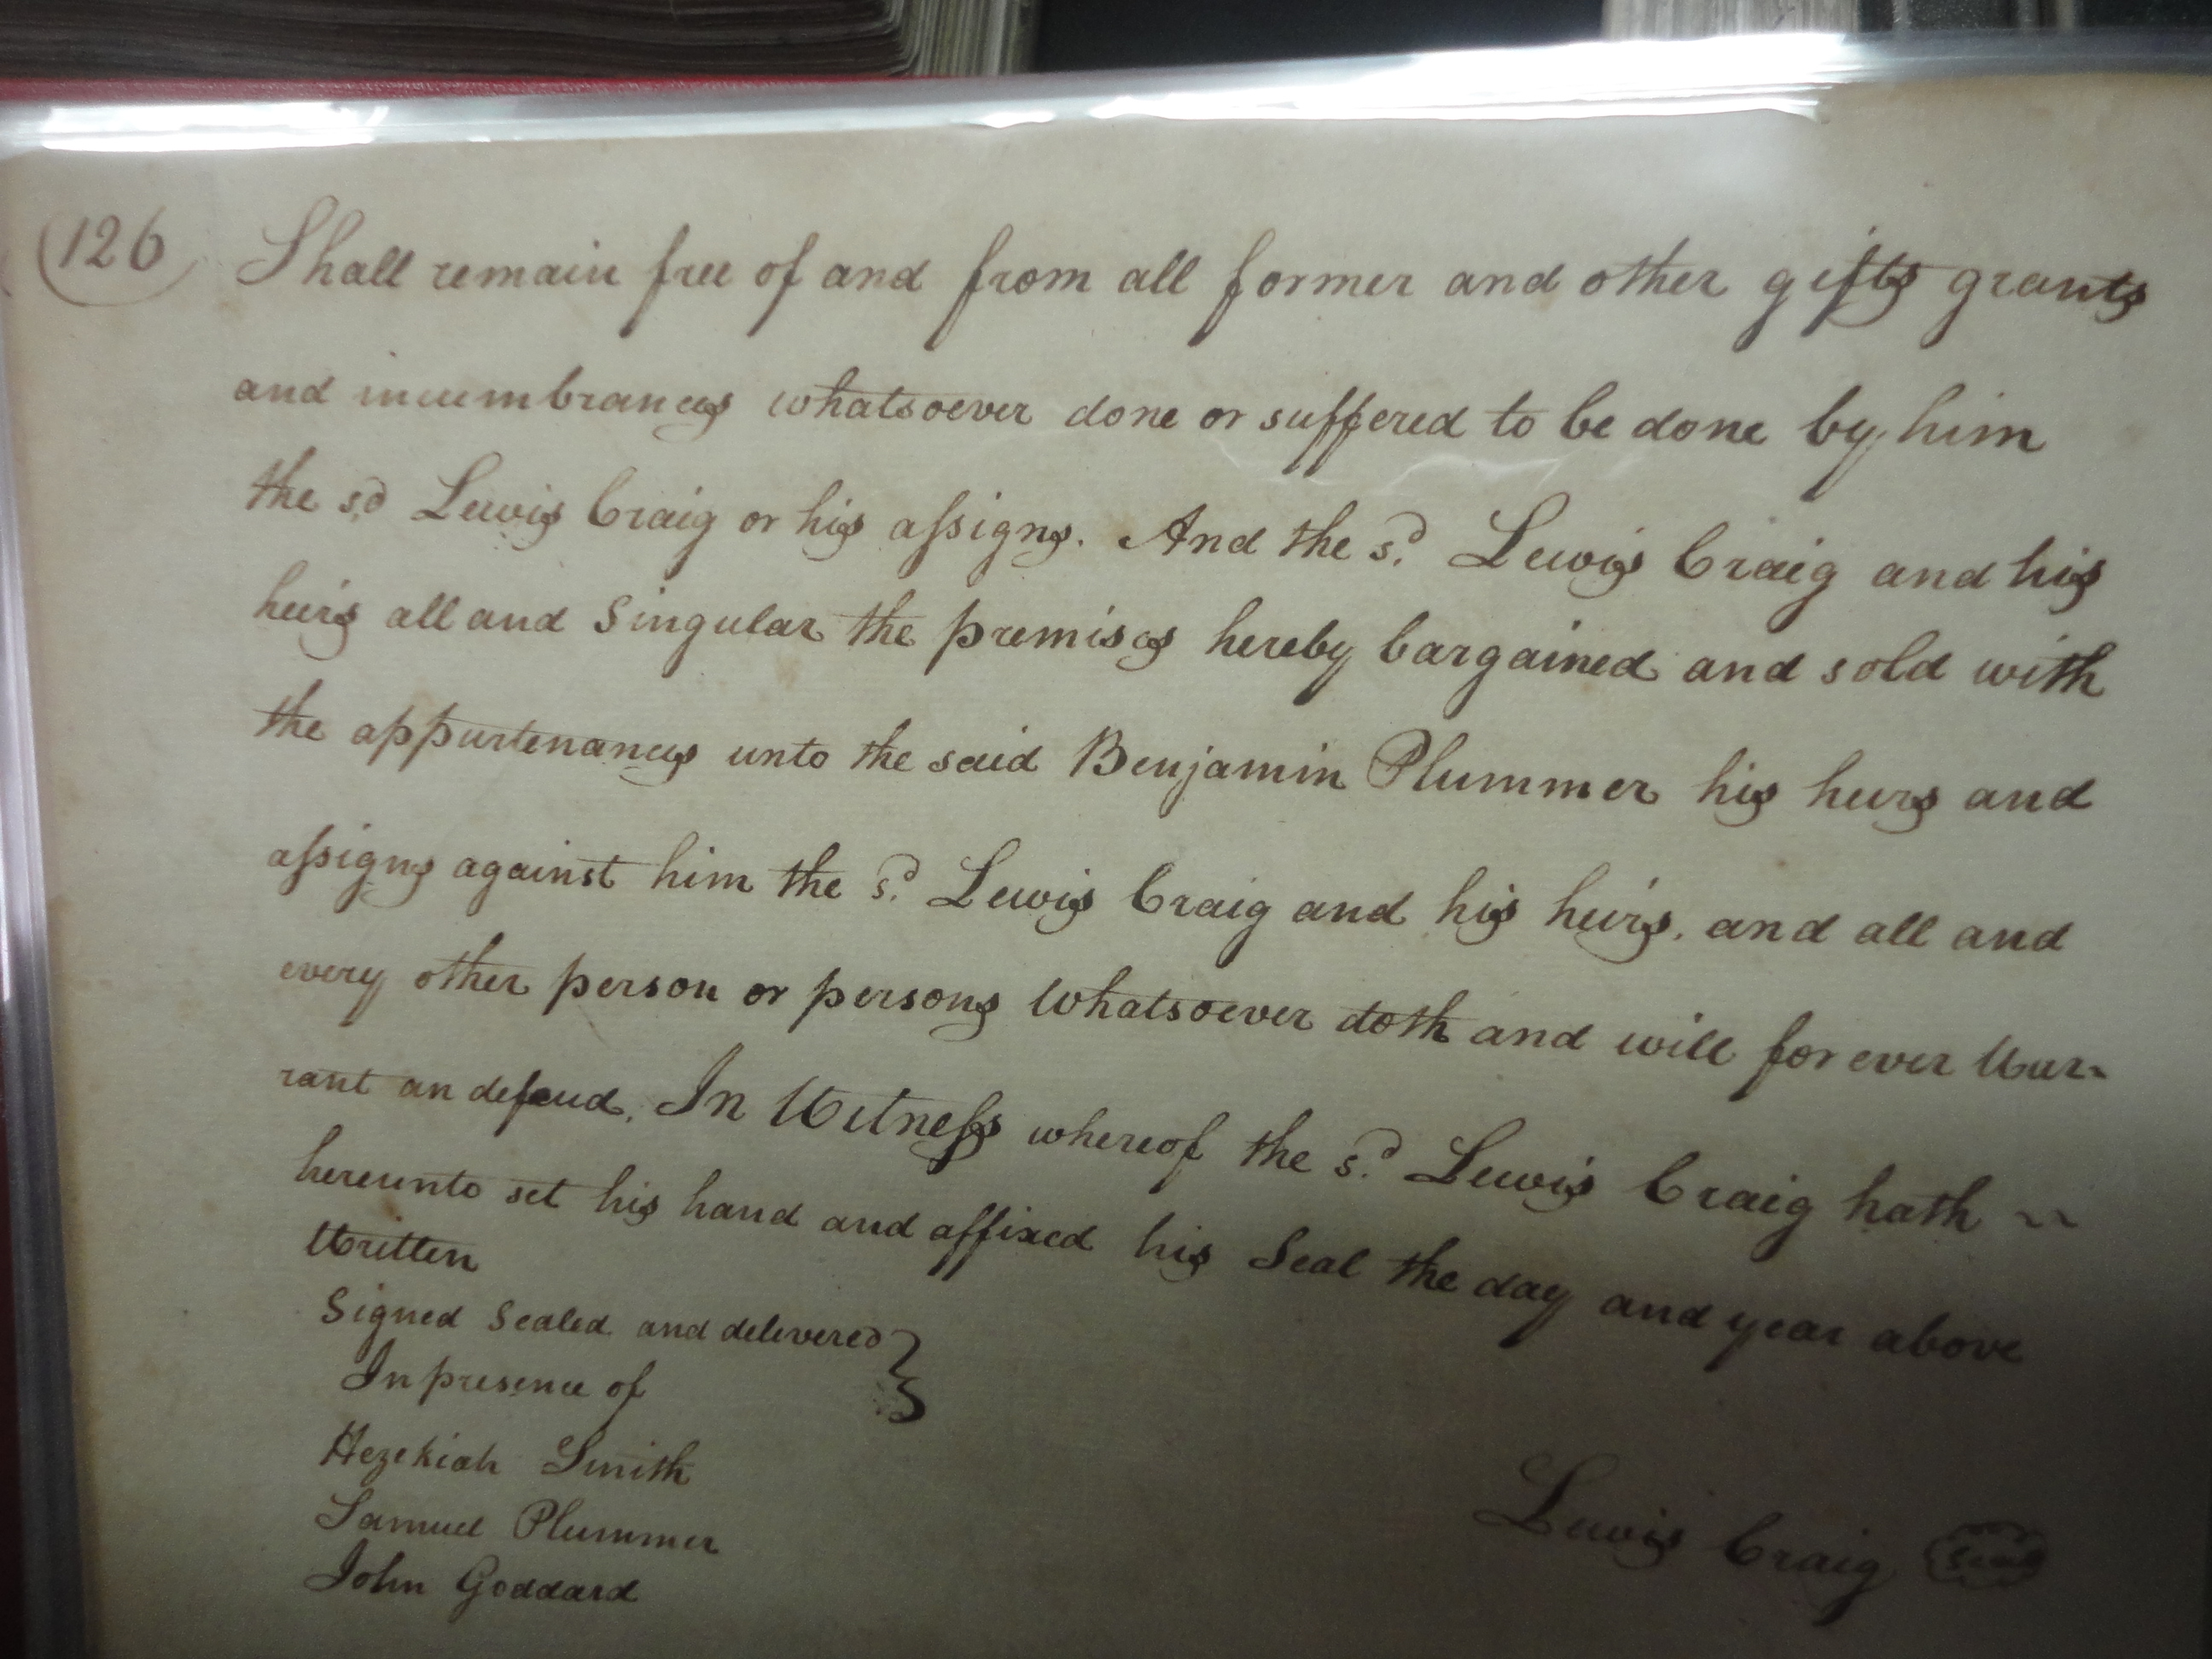 (126) Shall remain free of and from all former and other gifts grants
and incumbrances whatsoever done or suffered to be done by him
the sd Lewis Craig or his assigns. And the s.d Lewis Craig and his
heirs all and Singular the premises hereby bargained and sold with
the appurtenances unto the said Benjamin Plummer his heirs and
assigns against him the s.d Lewis Craig and his heirs, and all and
every other person or persons Whatsoever doth and will for ever War-
rant an defend. In Witness whereof the s.d Lewis Craig hath
hereunto set his hand and affixed his Seal the day and year above
Written
Signed Sealed and delivered }
In presence of
Hezekiah Smith
Samuel Plummer
John Goddard
Lewis Craig Seal